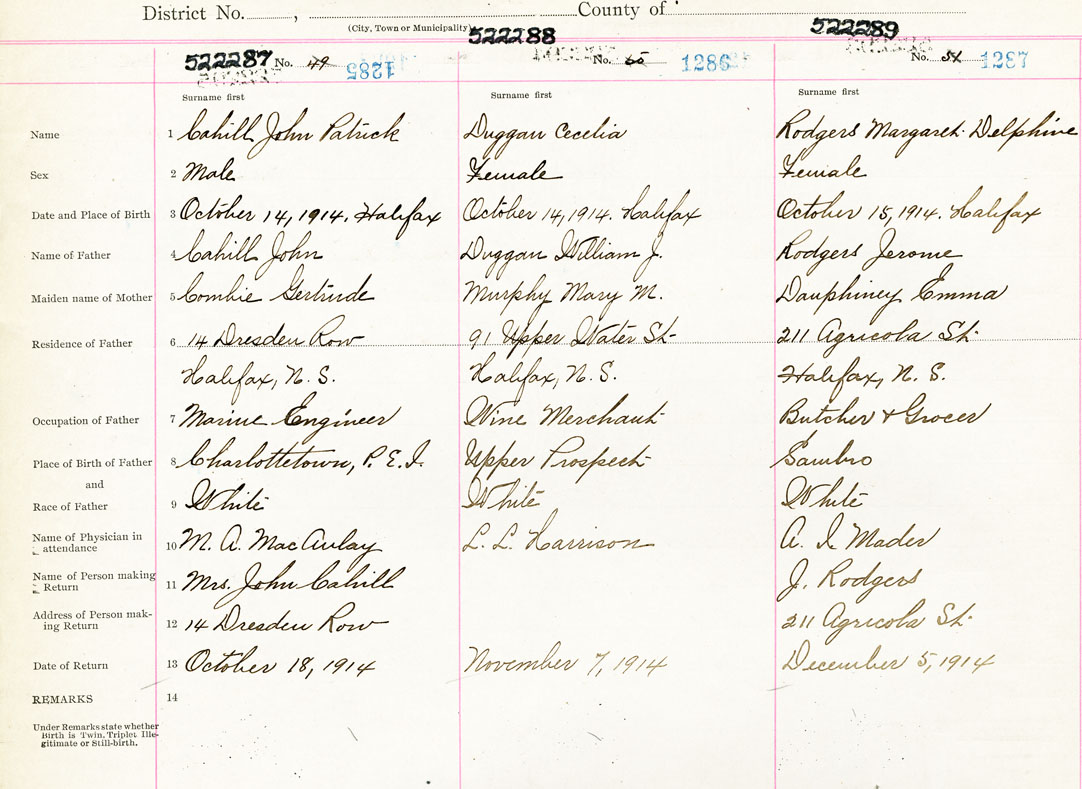 District No. , County of
(City, Town or Municipality)
522287 522288 522289
No. 49 1285 No. 50 1286 No. 51 1287
Surname first Surname first Surname first
Name 1 Cahill John Patrick Duggan Cecelia Rodgers Margaret Delphine
Sex 2 Male Female Female
Date and Place of Birth 3 October 14, 1914. Halifax October 14, 1914. Halifax October 15, 1914. Halifax
Name of Father 4 Cahill John Duggan William J. Rodgers Jerome
Maiden name of Mother 5 Combie Gertrude Murphy Mary M. Dauphiney Emma
Residence of Father 6 14 Dresden Row 91 Upper Water St. 211 Agricola St.
Halifax, N. S. Halifax, N. S. Halifax, N. S.
Occupation of Father 7 Marine Engineer Wine Merchant Butcher & Grocer
Place of Birth of Father 8 Charlottetown, P. E. I. Upper Prospect Sambro
and
Race of Father 9 White White White
Name of Physician in attendance 10 M. A. MacAulay L. L. Harrison A. I. Mader
Name of Person making Return 11 Mrs. John Cahill J. Rodgers
Address of Person making Return 12 14 Dresden Row 211 Agricola St.
Date of Return 13 October 18, 1914 November 7, 1914 December 5, 1914
REMARKS 14
Under Remarks state whether
Birth is Twin, Triplet Ille-
gitimate or Still-birth.